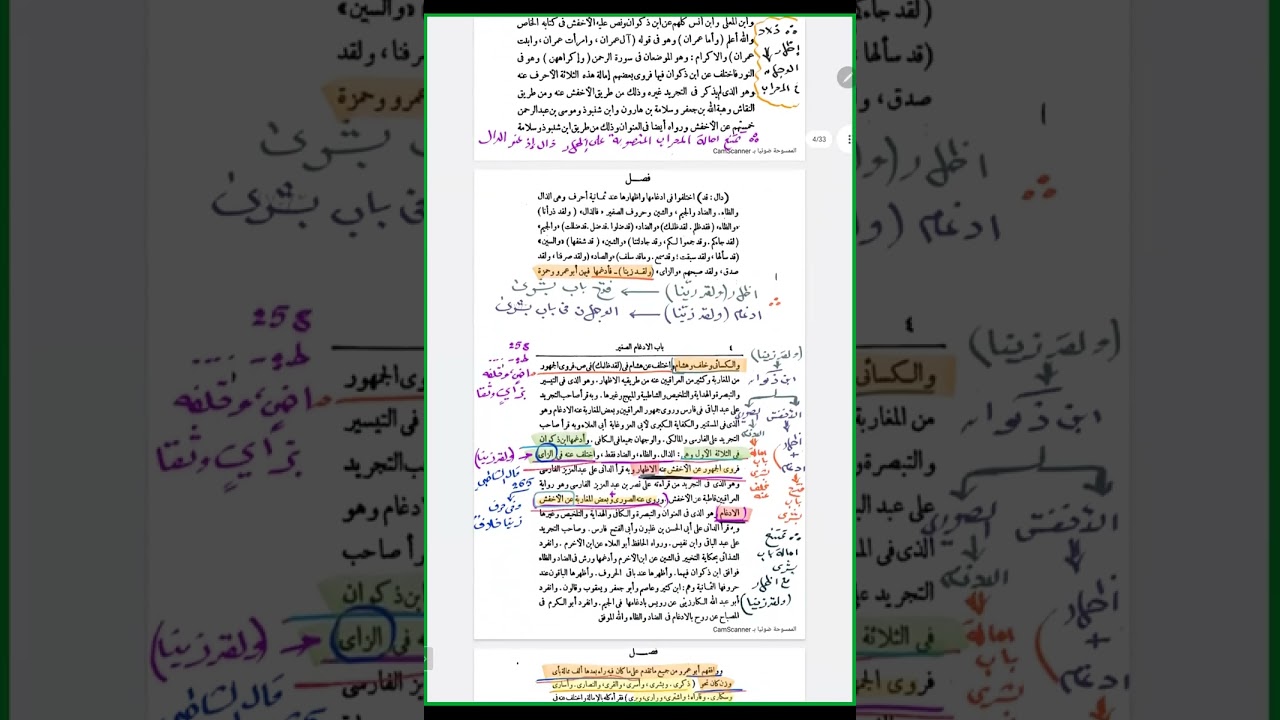 وابن المعلى وابن أنس كلهم عن ابن ذكوان ونص عليه الأخفش في كتابه الخاص
والله أعلم (وأما عمران) وهو فى قوله (آل عمران ، وامرأت عمران ، وابنت
عمران) والاكرام : وهو الموضعان فى سورة الرحمن (وإكراههن) وهو فى
النور فاختلف عن ابن ذكوان فيها فروى بعضهم إمالة هذه الثلاثة الأحرف عنه
وهو الذى لم يذكر فى التجريد غيره وذلك من طريق الأخفش عنه ومن طريق
النقاش وهبة الله بن جعفر وسلامة بن هارون وابن شنبوذ وموسى بن عبد الرحمن
خمستهم عن الأخفش ورواه أيضا فى العنوان وذلك من طريق ابن شنبوذ وسلامة
تمتنع امالة المحراب المنصوبة على إظهار ذال إذ عند الدال
الممسوحة ضوئيا بـ CamScanner
4/33
فصل
(دال : قد) اختلفوا فى ادغامها واظهارها عند ثمانية أحرف وهى الذال
والظاء . والضاد والجيم ، والشين وحروف الصفير «فالذال» (ولقد ذرأنا)
«والظاء» (فقد ظلم . لقد ظلمك) «والضاد» (قد ضلوا . قد ضل . قد ضللت) «والجيم»
(لقد جاءكم . وقد جمعوا لكم ، وقد جادلتنا) «والشين» (قد شغفها) «والسين»
(قد سألها ، ولقد سبقت ؛ وقد سمع . وما قد سلف) «والصاد» (ولقد صرفنا ، ولقد
صدق ، ولقد صبحهم «والزاى» (ولقد زينا) ـ فأدغمها فيهن أبو عمرو وحمزة
اظهار (ولقد زينا) ← فتح باب بشرى
ادغام (ولقد زينا) ← الوجهان فى باب بشرى
٤
باب الادغام الصغير
والكسائى وخلف وهشام واختلف عن هشام فى (لقد ظلمك) فى ص. فروى الجمهور
من المغاربة وكثير من العراقيين عنه من طريقيه الاظهار . وهو الذى فى التيسير
والتبصرة والهداية والتلخيص والشاطبية والمبهج وغيرها . وبه قرأ صاحب التجريد
على عبد الباقى فى فارس وروى جمهور العراقيين وبعض المغاربة عنه الادغام وهو
الذى فى المستنير والكفاية الكبرى لأبى العز وغاية أبى العلاء وبه قرأ صاحب
التجريد على الفارسى والمالكى . والوجهان جميعا فى الكافى . وأدغمها ابن ذكوان
فى الثلاثة الاول وهى : الذال . والظاء ، والضاد فقط ، واختلف عنه فى الزاى
فروى الجمهور عن الأخفش عنه الاظهار وبه قرأ الدانى على عبد العزيز الفارسى
وهو الذى فى التجريد من قراءته على نصر بن عبد العزيز الفارسى وهو رواية
العراقيين قاطبة عن الأخفش (وروى عنه الصورى وبعض المغاربة عن الأخفش
الادغام) وهو الذى فى العنوان والتبصرة والكافى والهداية والتلخيص وغيرها
وبه قرأ الدانى على أبى الحسن بن غلبون وأبى الفتح فارس . وصاحب التجريد
على عبد الباقى وابن نفيس . ورواه الحافظ أبو العلاء عن ابن الأخرم . وانفرد
الشذائى بحكاية التخيير فى الشين عن ابن الأخرم وأدغمها ورش فى الضاد والظاء
فوافق ابن ذكوان فيهما . وأظهرها عند باقى الحروف . وأظهرها الباقون عند
حروفها الثمانية وهم : ابن كثير وعاصم وأبو جعفر ويعقوب وقالون . وانفرد
أبو عبد الله الكارزينى عن رويس بادغامها فى الجيم . وانفرد أبو الكرم فى
المصباح عن روح بالادغام فى الضاد والظاء والله الموفق
258
265
(ولقد زينا)
ابن ذكوان
الأخفش
الصورى
اظهار
+
ادغام
فتح
باب
بشرى
امالة
باب
بشرى
تمتنع
امالة باب
بشرى
مع اظهار
(ولقد زينا)
الممسوحة ضوئيا بـ CamScanner
فصل
ووافقهم أبو عمرو من جميع ما تقدم على ما كان فيه راء بعدها ألف ممالة بأى
وزن كان نحو (ذكرى . وبشرى ، وأسرى ، والقرى ، والنصارى . وأسارى